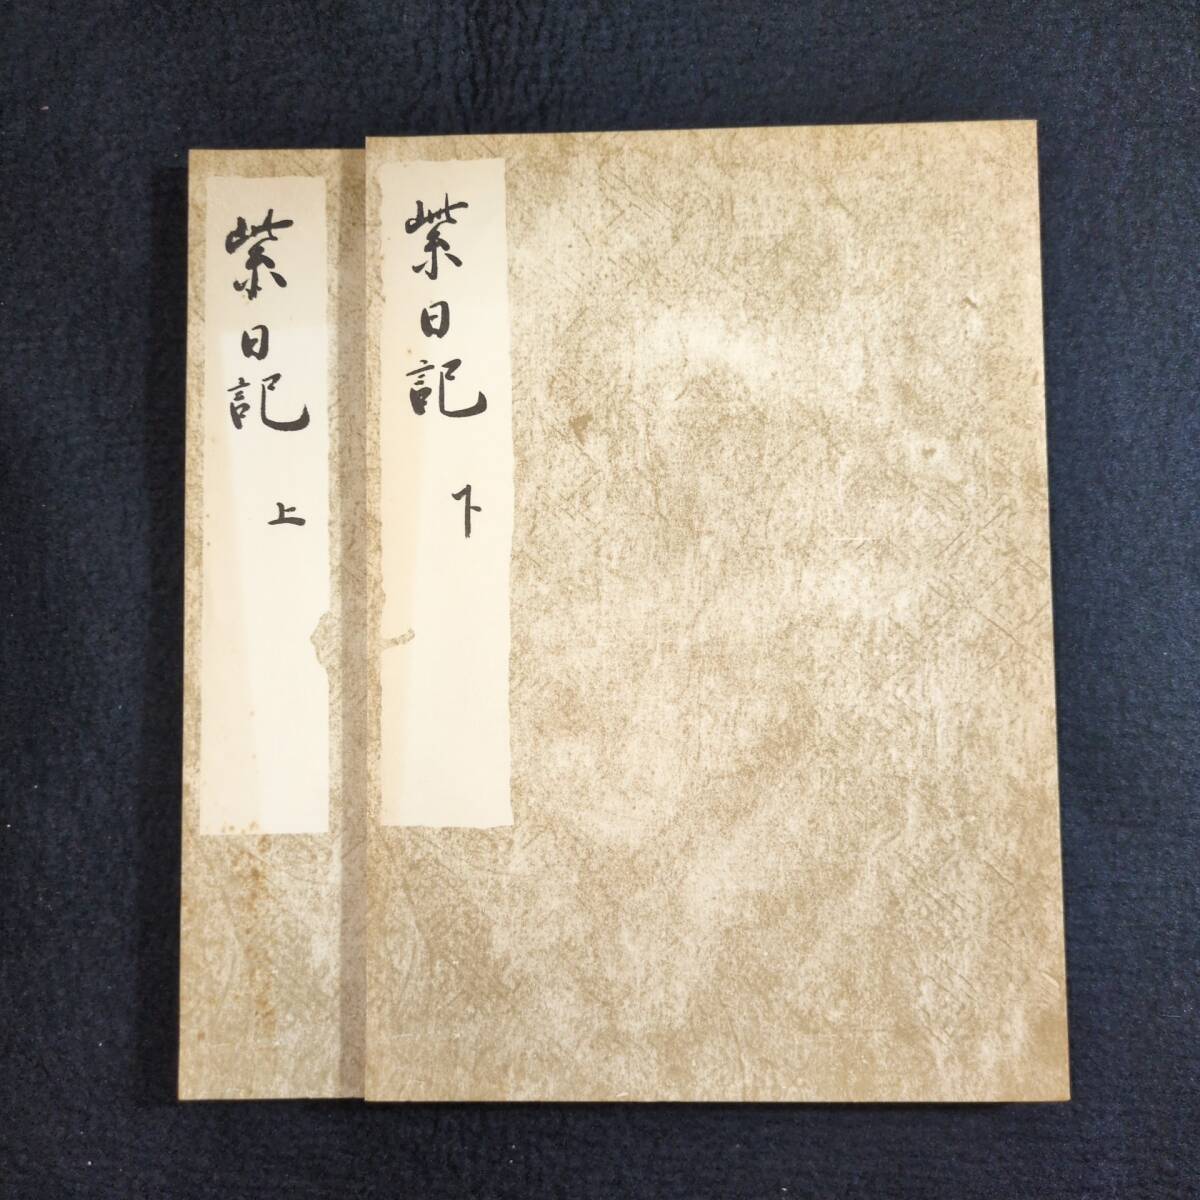 紫日記
上
紫日記
下